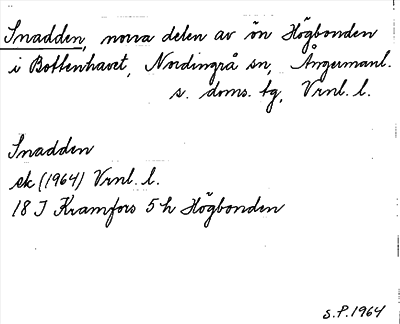 Snadden, norra delen av ön Högbonden
i Bottenhavet, Nordingrå sn, Ångermanl.
s. doms. tg, Vrnl. l.
Snadden
sk (1964) Vrnl. l.
18 J Kramfors 5 h Högbonden
S.P. 1964